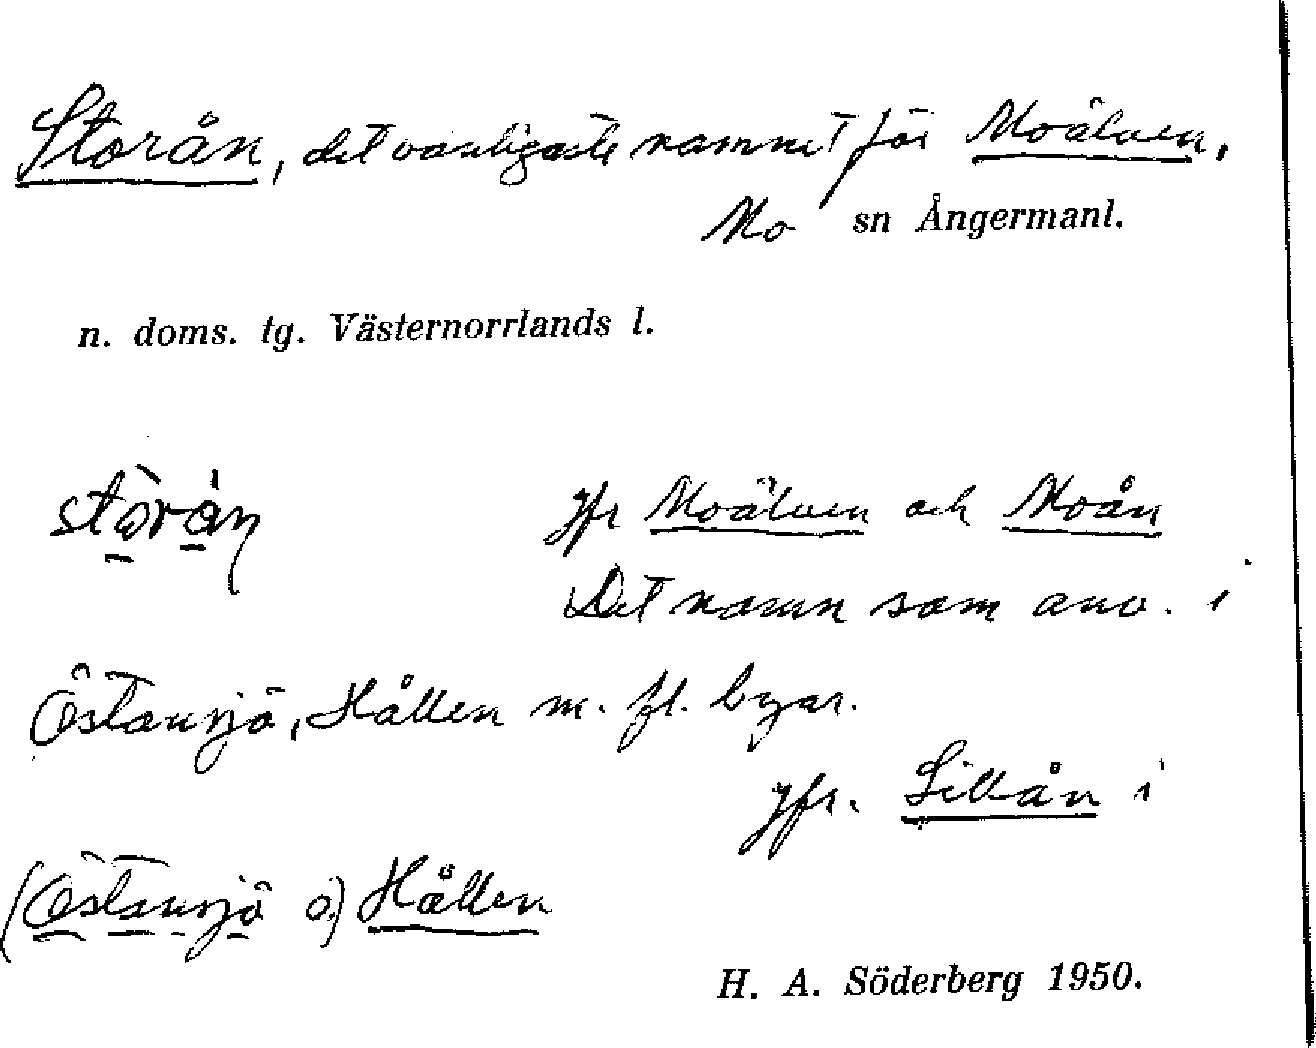 Storån, det vanligaste namnet för Moälven,
Mo sn Ångermanl.
n. doms. tg. Västernorrlands l.
stòrán jfr Moälven och Moån
Det namn som anv. i
Östansjö, Hållen m. fl. byar.
Jfr. Lillån i
(Östansjö o) Hållen
H. A. Söderberg 1950.